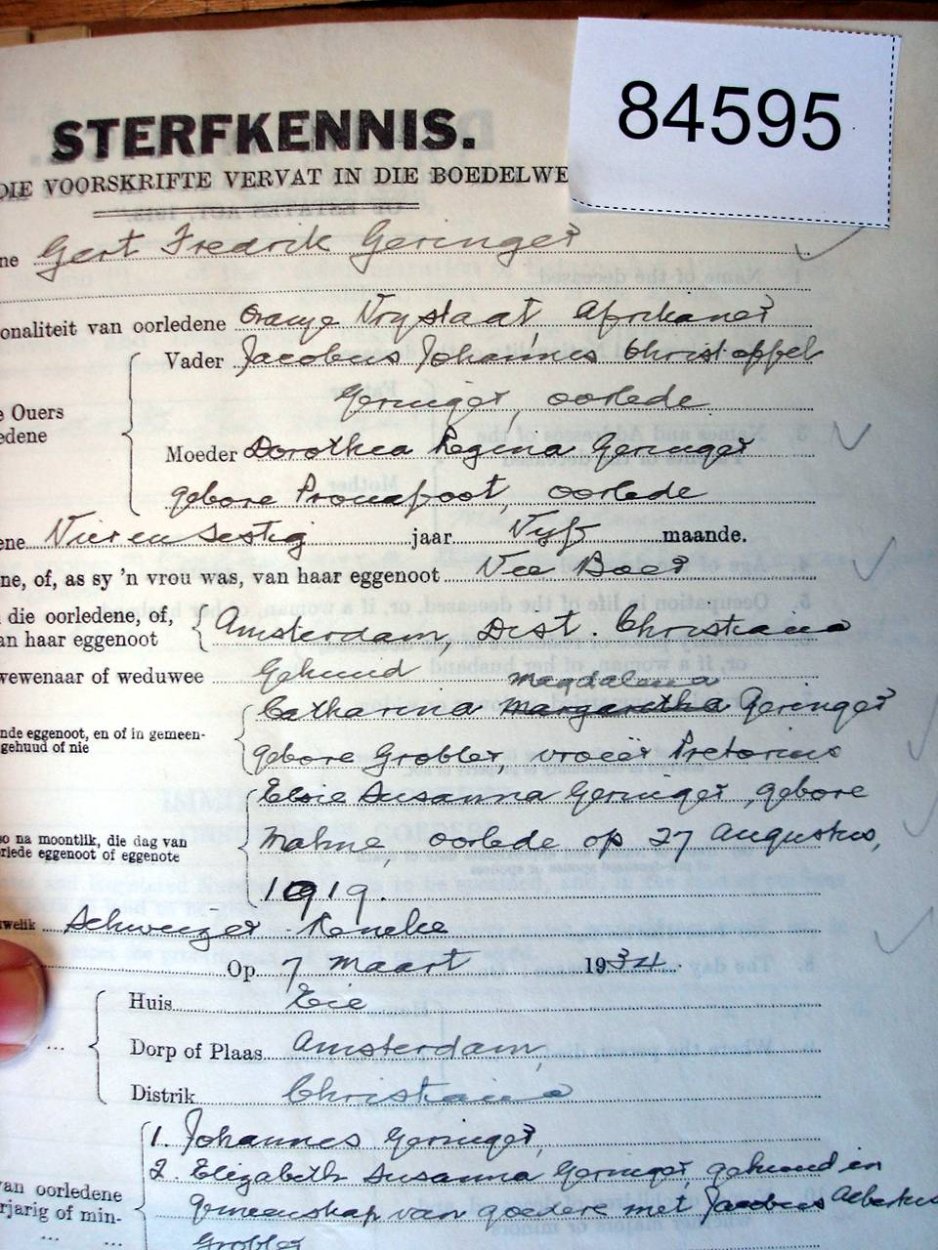 84595
STERFKENNIS.
DIE VOORSKRIFTE VERVAT IN DIE BOEDELWE
ne Gert Fredrik Geringer
onaliteit van oorledene Oranje Vrystaat, Afrikaner
Vader Jacobus Johannes Christoffel
Geringer, oorlede
e Ouers
edene
Moeder Dorothea Regina Geringer
gebore Prouafoot, oorlede
ene Vier en Sestig jaar Vyf maande.
ne, of, as sy 'n vrou was, van haar eggenoot Vee Boer
die oorledene, of,
an haar eggenoot Amsterdam, Dist. Christiana
wewenaar of weduwee Gehuud
Magdalena
Catharina Margaretha Geringer
nde eggenoot, en of in gemeen-
gehuud of nie
gebore Grobler, vroeër Pretorius
Elsie Susanna Geringer, gebore
so na moontlik, die dag van
rlede eggenoot of eggenote
oorlede op 27 Augustus,
1919.
welik Schweizer-Reneke
Op 7 Maart 1934.
Huis
Dorp of Plaas Amsterdam,
Distrik Christiana
1. Johannes Geringer,
2. Elizabeth Susanna Geringer, gehuud in
van oorledene
rjarig of min-
gemeenskap van goedere met Jacobus Albertus
Grobler